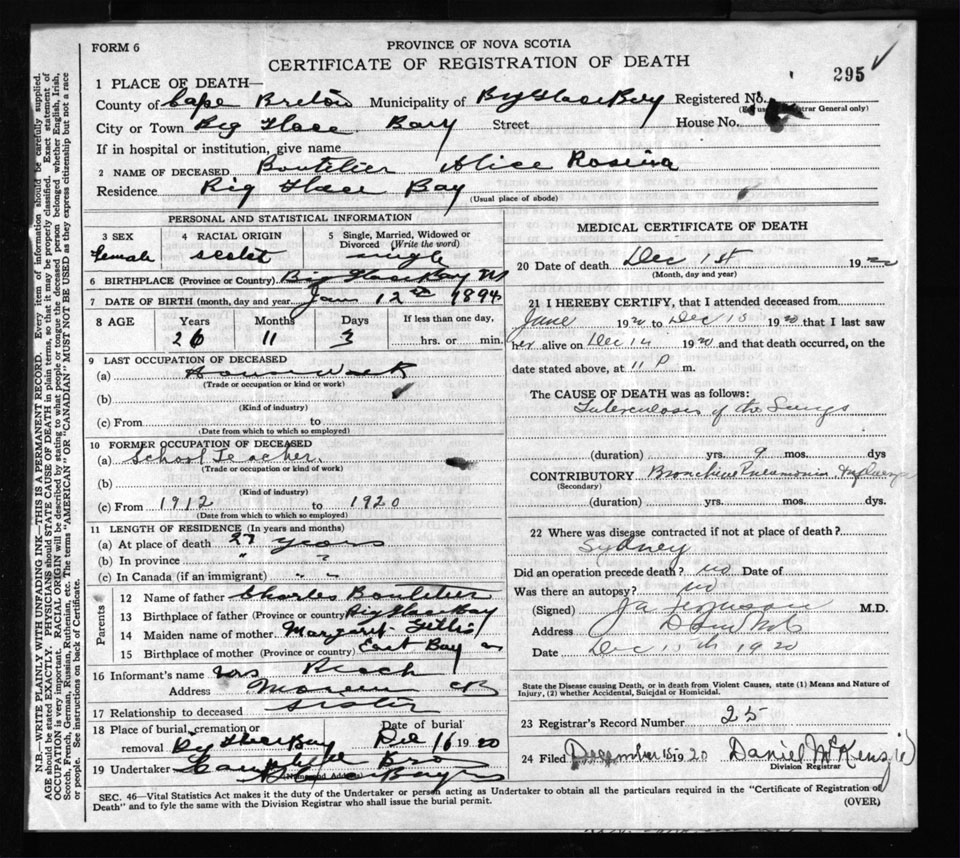 FORM 6
PROVINCE OF NOVA SCOTIA
CERTIFICATE OF REGISTRATION OF DEATH
295 ✓
1 PLACE OF DEATH—
County of Cape Breton Municipality of Big Glace Bay Registered No.
(For use of Registrar General only)
City or Town Big Glace Bay Street House No.
If in hospital or institution, give name
2 NAME OF DECEASED Boutelier Alice Rosena
Residence Big Glace Bay
(Usual place of abode)
PERSONAL AND STATISTICAL INFORMATION
3 SEX female
4 RACIAL ORIGIN
5 Single, Married, Widowed or Divorced (Write the word) single
6 BIRTHPLACE (Province or Country) Big Glace Bay NS
7 DATE OF BIRTH (month, day and year) Jan 12th 1894
8 AGE Years 26 Months 11 Days 3 If less than one day, hrs. or min.
9 LAST OCCUPATION OF DECEASED
(a) Housework
(Trade or occupation or kind of work)
(b)
(Kind of industry)
(c) From to
(Date from which to which so employed)
10 FORMER OCCUPATION OF DECEASED
(a) School Teacher
(Trade or occupation or kind of work)
(b)
(Kind of industry)
(c) From 1912 to 1920
(Date from which to which so employed)
11 LENGTH OF RESIDENCE (In years and months)
(a) At place of death 27 years
(b) In province " "
(c) In Canada (if an immigrant) " "
Parents
12 Name of father Charles Boutelier
13 Birthplace of father (Province or country) Big Glace Bay
14 Maiden name of mother Margaret Gillis
15 Birthplace of mother (Province or country) East Bay
16 Informant's name Mrs Beach
Address CB
17 Relationship to deceased sister
18 Place of burial, cremation or removal Big Glace Bay Date of burial Dec 16 1920
19 Undertaker Bros
(Name and Address)
MEDICAL CERTIFICATE OF DEATH
20 Date of death Dec 1920
(Month, day and year)
21 I HEREBY CERTIFY, that I attended deceased from
June 1920 to Dec 15 1920 that I last saw
her alive on Dec 14 1920 and that death occurred, on the
date stated above, at 11 P m.
The CAUSE OF DEATH was as follows:
Tuberculosis of the Lungs
(duration) yrs. 9 mos. dys.
CONTRIBUTORY Bronchial Pneumonia Influenza
(Secondary)
(duration) yrs. mos. dys.
22 Where was disease contracted if not at place of death?
Sydney
Did an operation precede death? no Date of
Was there an autopsy? no
(Signed) Ferguson M.D.
Address
Date Dec 15th 1920
State the Disease causing Death, or in death from Violent Causes, state (1) Means and Nature of
Injury, (2) whether Accidental, Suicidal or Homicidal.
23 Registrar's Record Number 25
24 Filed December 16 1920 Daniel McKenzie
Division Registrar
SEC. 46—Vital Statistics Act makes it the duty of the Undertaker or person acting as Undertaker to obtain all the particulars required in the "Certificate of Registration of
Death" and to fyle the same with the Division Registrar who shall issue the burial permit.
(OVER)
N.B.—WRITE PLAINLY WITH UNFADING INK—THIS IS A PERMANENT RECORD. Every item of information should be carefully supplied.
AGE should be stated EXACTLY. PHYSICIANS should STATE CAUSE OF DEATH in plain terms, so that it may be properly classified. Exact statement of
OCCUPATION is very important. RACIAL ORIGIN will be described by stating to what people or tongue the deceased person belonged whether English, Irish,
Scotch, French, German, Russian, Ruthenian, etc. The terms "AMERICAN" OR "CANADIAN" MUST NOT BE USED as they express citizenship but not a race
or people. See instructions on back of Certificate.